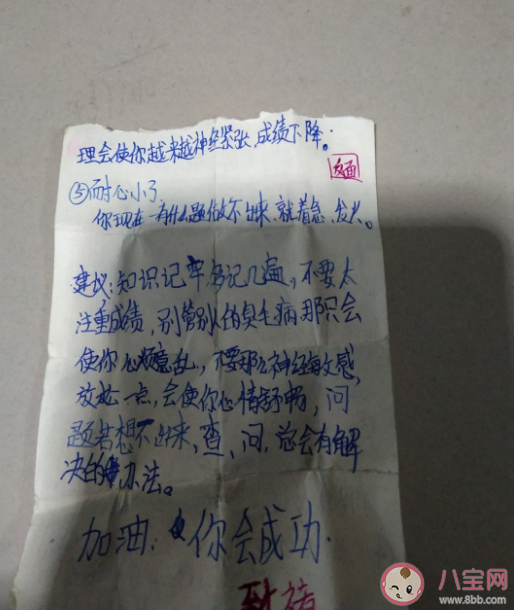 理会使你越来越神经紧张,成绩下降。
反面
⑤耐心小了
你现在一有什么题做不出来,就着急、发火。
建议:知识记牢多记几遍,不要太
注重成绩,别管别人的臭毛病,那只会
使你心烦意乱,不要那么神经敏感,
放松一点,会使你心情舒畅,问
题若想不出来,查、问,总会有解
决的办法。
加油:你会成功.
八宝网
www.8bb.com